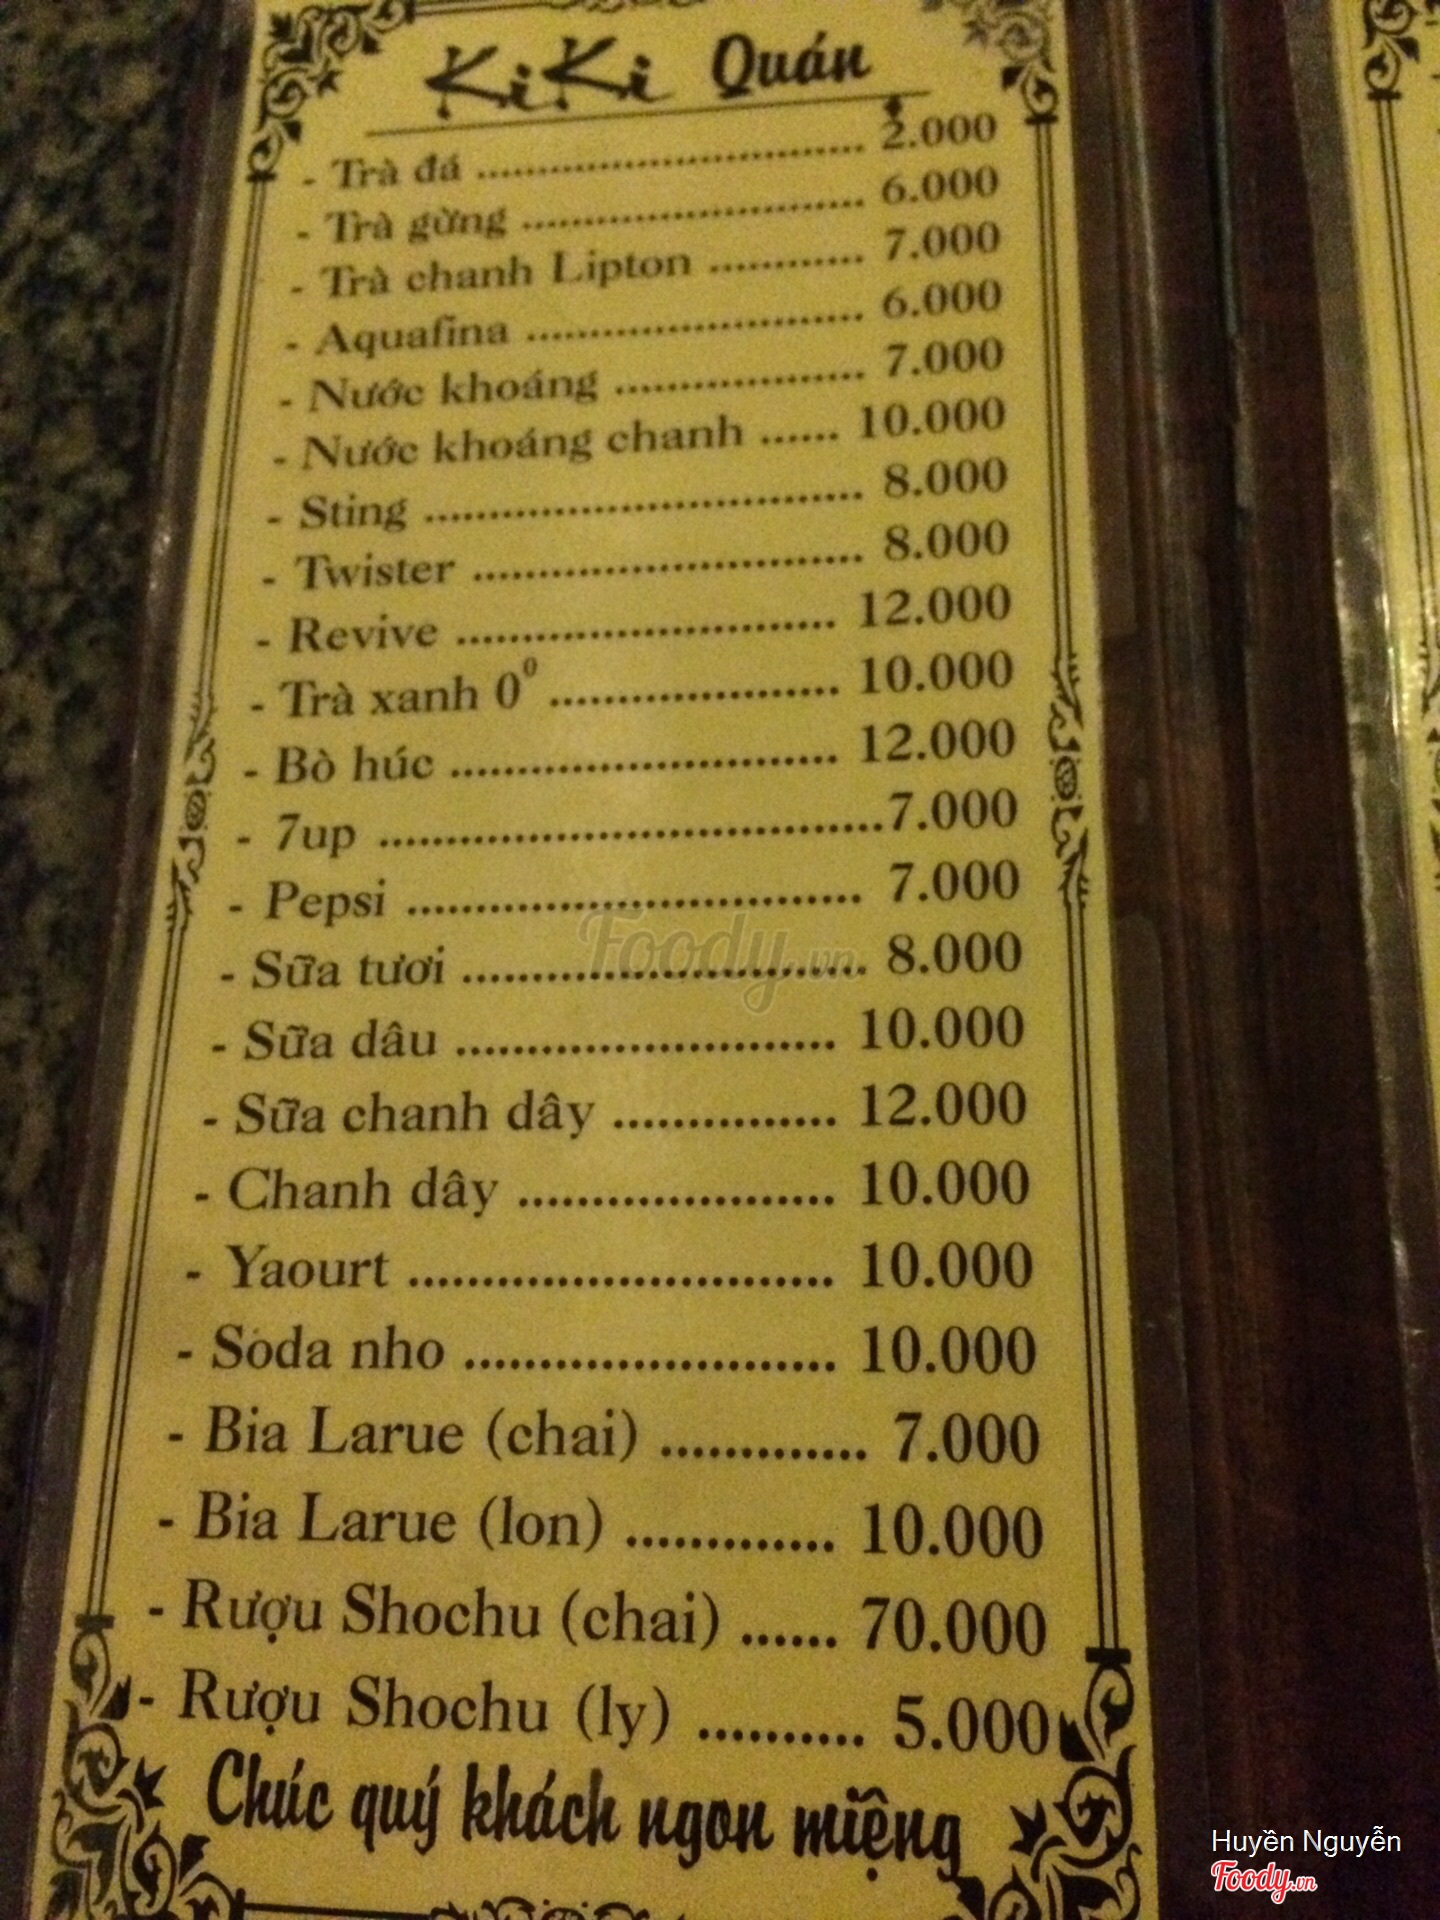 KiKi Quán
- Trà đá ............................. 2.000
- Trà gừng .......................... 6.000
- Trà chanh Lipton ............ 7.000
- Aquafina .......................... 6.000
- Nước khoáng ................... 7.000
- Nước khoáng chanh ...... 10.000
- Sting ................................. 8.000
- Twister ............................. 8.000
- Revive ............................. 12.000
- Trà xanh 0⁰ ...................... 10.000
- Bò húc ............................. 12.000
- 7up ......................................7.000
- Pepsi ................................. 7.000
- Sữa tươi ............................ 8.000
- Sữa dâu ........................... 10.000
- Sữa chanh dây ............... 12.000
- Chanh dây ...................... 10.000
- Yaourt ............................. 10.000
- Soda nho ......................... 10.000
- Bia Larue (chai) ............. 7.000
- Bia Larue (lon) ............. 10.000
- Rượu Shochu (chai) ...... 70.000
- Rượu Shochu (ly) .......... 5.000
Chúc quý khách ngon miệng
Foody.vn
Huyền Nguyễn
Foody.vn